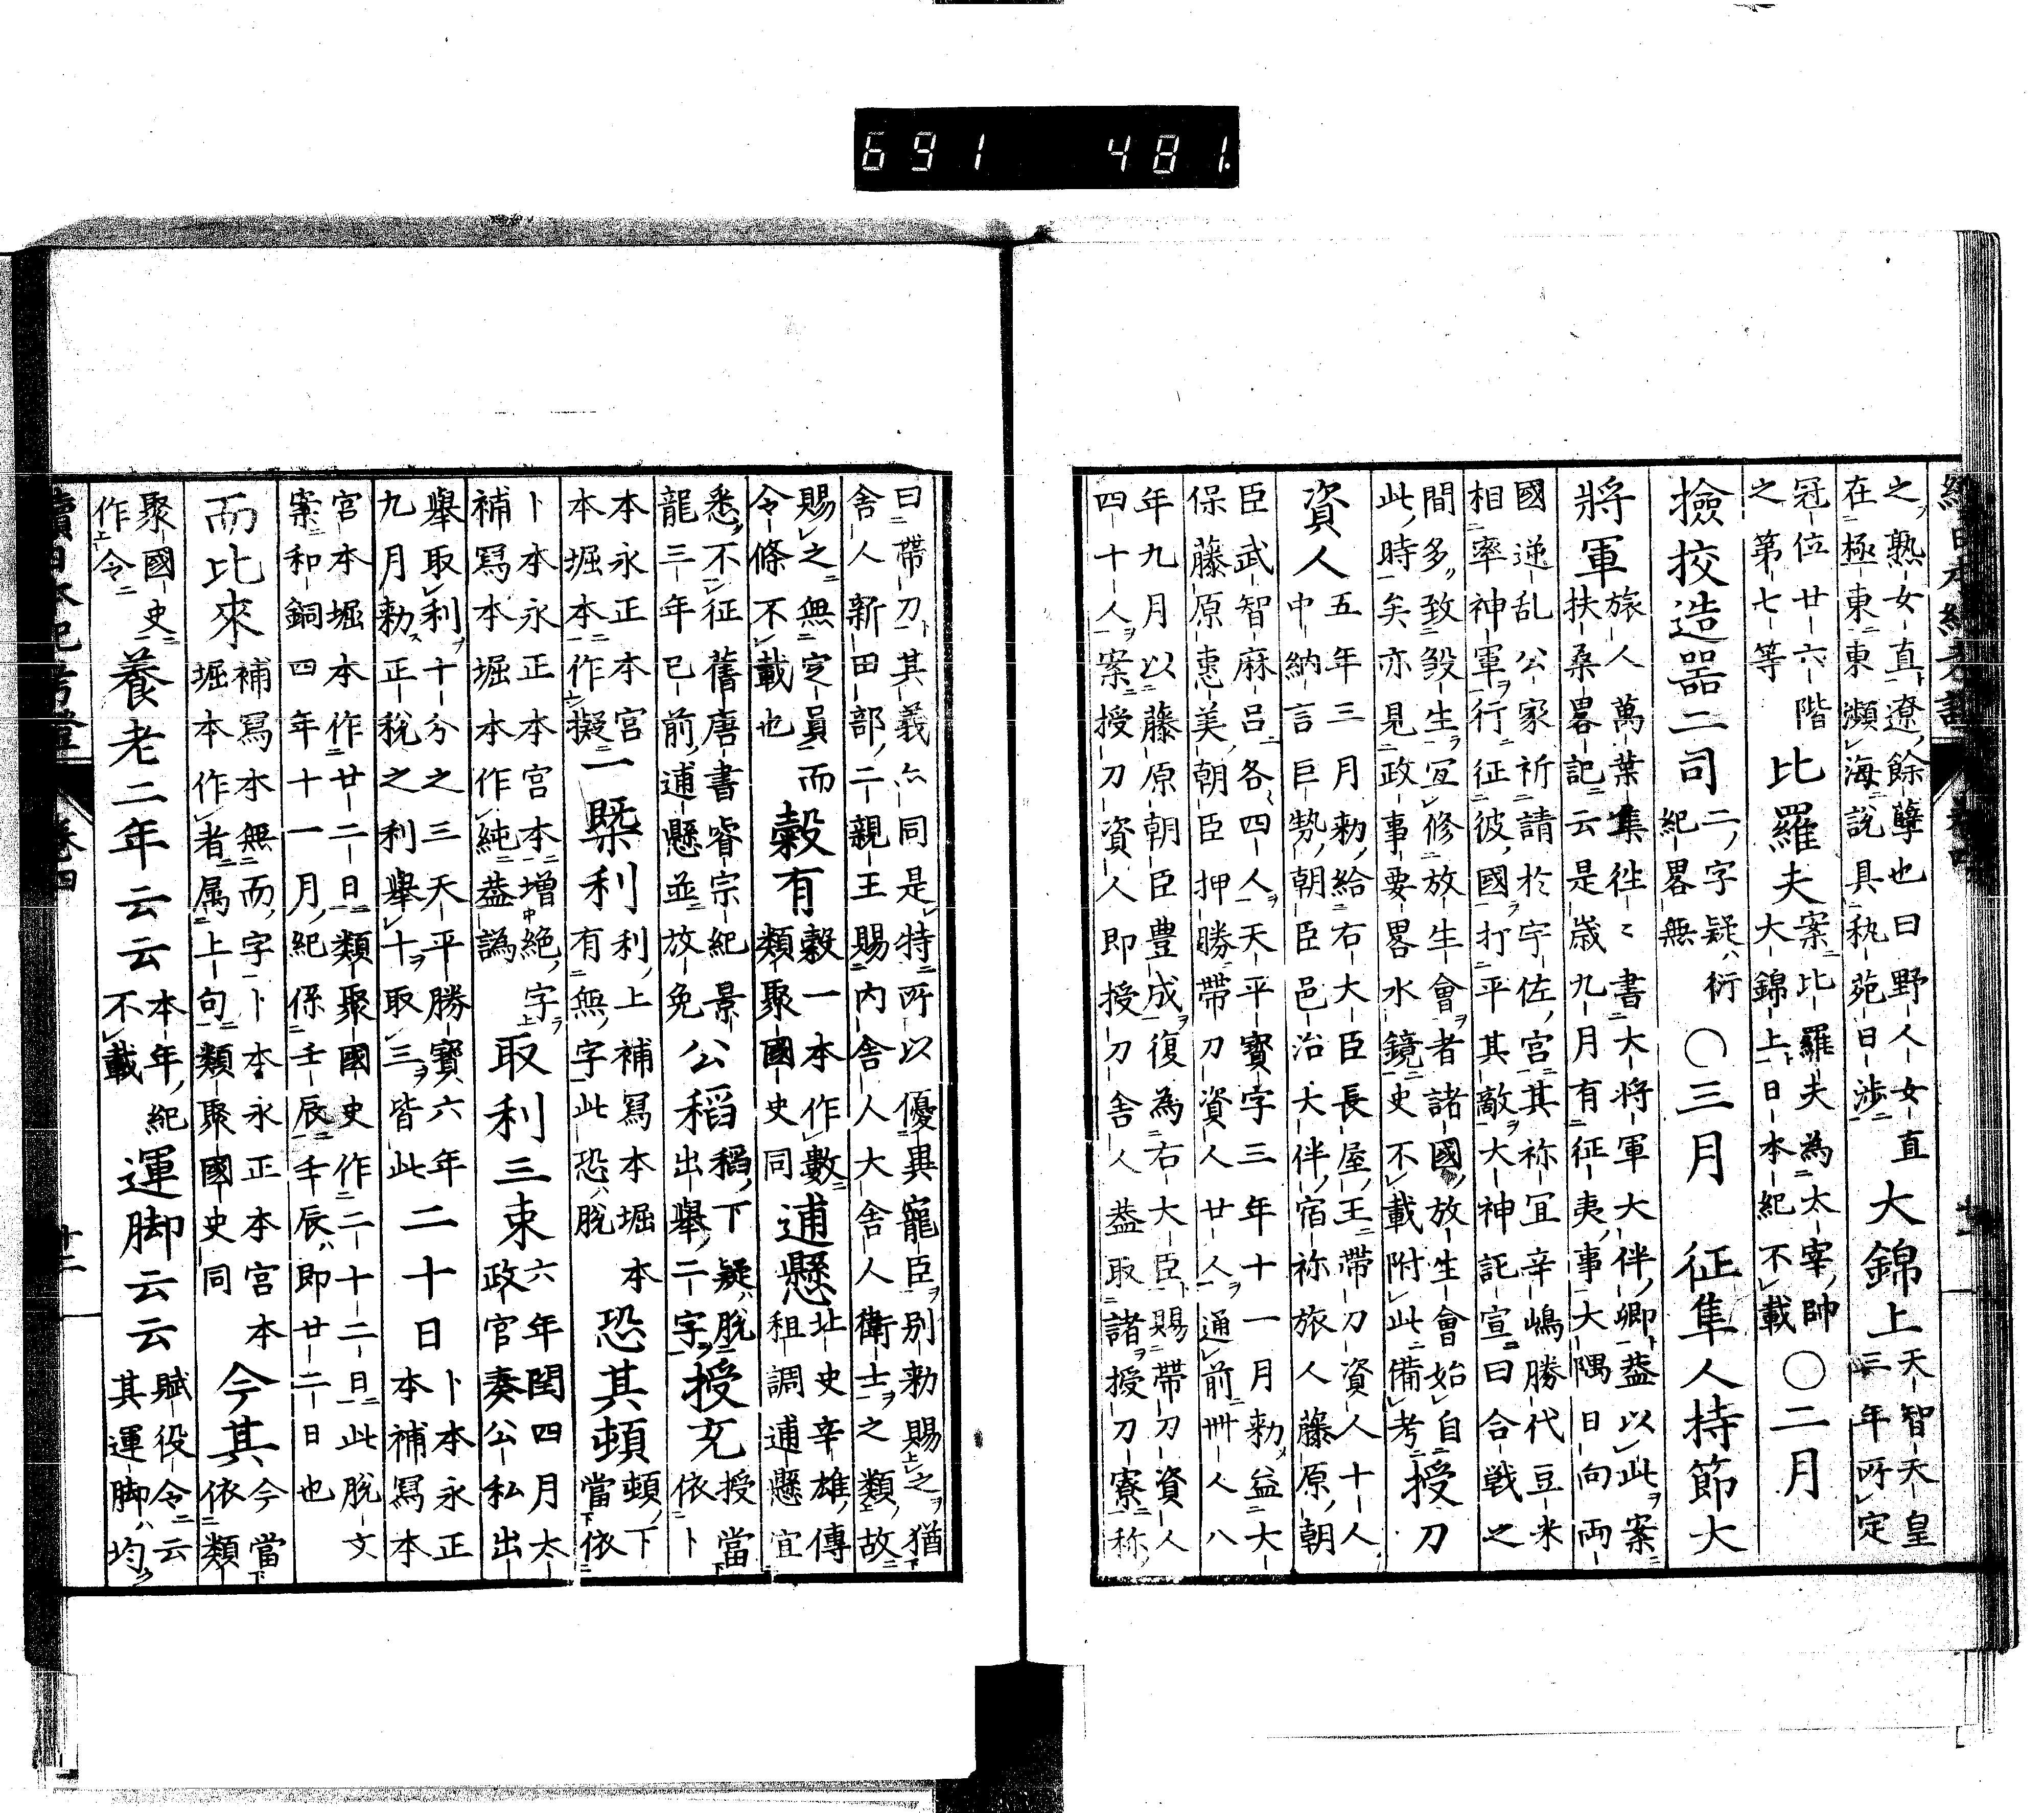 691 481
之熟女直遼餘孽也曰野人女直
在極東東瀕海說具秇苑日渉
大錦上
天智天皇
三年所定
冠位廿六階
之第七等
比羅夫
案比羅夫為太宰帥
大錦上日本紀不載
〇二月
撿挍造噐二司
二字疑衍
紀畧無
〇三月
征隼人持節大
將軍
旅人萬葉集徃々書大将軍大伴卿葢以此案
扶桑畧記云是歳九月有征夷事大隅日向両
國逆乱公家祈請於宇佐宮其祢冝辛嶋勝代豆米
相率神軍行征彼國打平其敵大神託宣曰合戦之
間多致殺生冝修放生會者諸國放生會始自
此時矣亦見政事要畧水鏡史不載附此備考
授刀
資人
五年三月勅給右大臣長屋王帶刀資人十人
中納言巨勢朝臣邑治大伴宿祢旅人藤原朝
臣武智麻呂各四人天平寳字三年十一月勅益大
保藤原恵美朝臣押勝帶刀資人廿人通前卌人八
年九月以藤原朝臣豊成復為右大臣賜帶刀資人
四十人案授刀資人即授刀舎人葢取諸授刀寮称
曰帶刀其義亦同是特所以優異寵臣別勅賜之猶
舎人新田部二親王賜内舎人大舎人衛士之類故
賜之無定員而
令條不載也
穀有
穀一本作數
類聚國史同
逋懸
北史辛雄傳
租調逋懸宜
悉不征舊唐書睿宗紀景
龍三年已前逋懸並放免
公稻
稻下疑脱
出舉二字
授充
授當
依卜
本永正本宮
本堀本作擬
一槩利
利上補寫本堀本
有無字此恐脱
恐其頓
頓下
當依
卜本永正本宮本増絶字
補寫本堀本作純葢譌
取利三束
六年閏四月太
政官奏公私出
舉取利十分之三天平勝寳六年
九月勅正税之利舉十取三皆此
二十日
卜本永正
本補寫本
宮本堀本作廿二日類聚國史作二十二日此脱文
案和銅四年十一月紀係壬辰壬辰即廿二日也
而比來
補寫本無而字卜本永正本宮本
堀本作者属上句類聚國史同
今其
今當
依類
聚國史
作令
養老二年云云
本年紀
不載
運脚云云
賦役令云
其運脚均
續日本紀考證
卷四